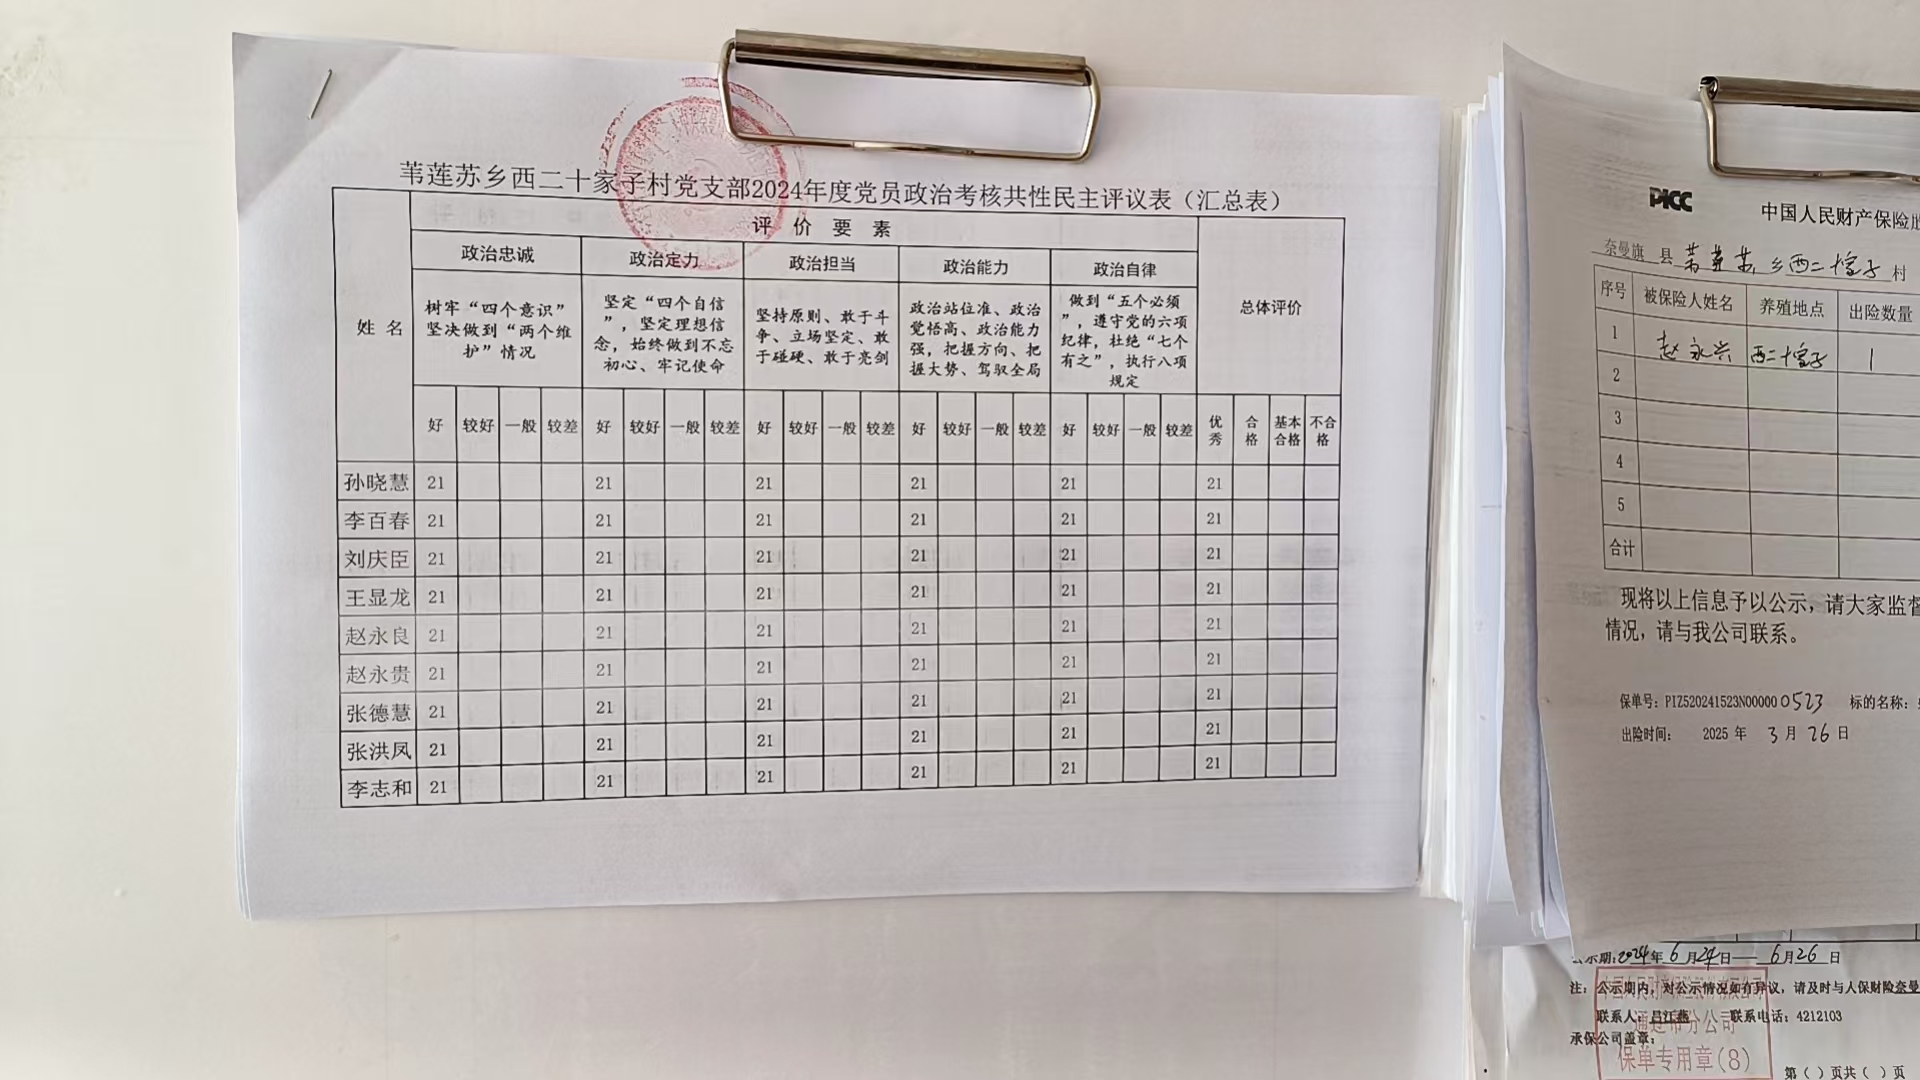 苇莲苏乡西二十家子村党支部2024年度党员政治考核共性民主评议表（汇总表）
姓 名 评 价 要 素 总体评价
政治忠诚 政治定力 政治担当 政治能力 政治自律
树牢“四个意识”
坚决做到“两个维
护”情况
坚定“四个自信
”，坚定理想信
念，始终做到不忘
初心、牢记使命
坚持原则、敢于斗
争、立场坚定、敢
于碰硬、敢于亮剑
政治站位准、政治
觉悟高、政治能力
强，把握方向、把
握大势、驾驭全局
做到“五个必须
”，遵守党的六项
纪律，杜绝“七个
有之”，执行八项
规定
好 较好 一般 较差 好 较好 一般 较差 好 较好 一般 较差 好 较好 一般 较差 好 较好 一般 较差 优秀 合格 基本合格 不合格
孙晓慧 21 21 21 21 21 21
李百春 21 21 21 21 21 21
刘庆臣 21 21 21 21 21 21
王显龙 21 21 21 21 21 21
赵永良 21 21 21 21 21 21
赵永贵 21 21 21 21 21 21
张德慧 21 21 21 21 21 21
张洪凤 21 21 21 21 21 21
李志和 21 21 21 21 21 21
PICC
中国人民财产保险
奈曼旗 县 苇莲苏 乡 西二十家子 村
序号 被保险人姓名 养殖地点 出险数量
1 赵永兴 西二十家子 1
2
3
4
5
合计
现将以上信息予以公示，请大家监督
情况，请与我公司联系。
保单号：PIZ520241523N00000 0523 标的名称：
出险时间： 2025 年 3 月 26 日
公示期：2024年 6 月 24 日—— 6 月 26 日
注：公示期内，对公示情况如有异议，请及时与人保财险奈曼
联系人：吕江燕 联系电话：4212103
承保公司盖章：
通辽市分公司
保单专用章(8)
第（ ）页共（ ）页